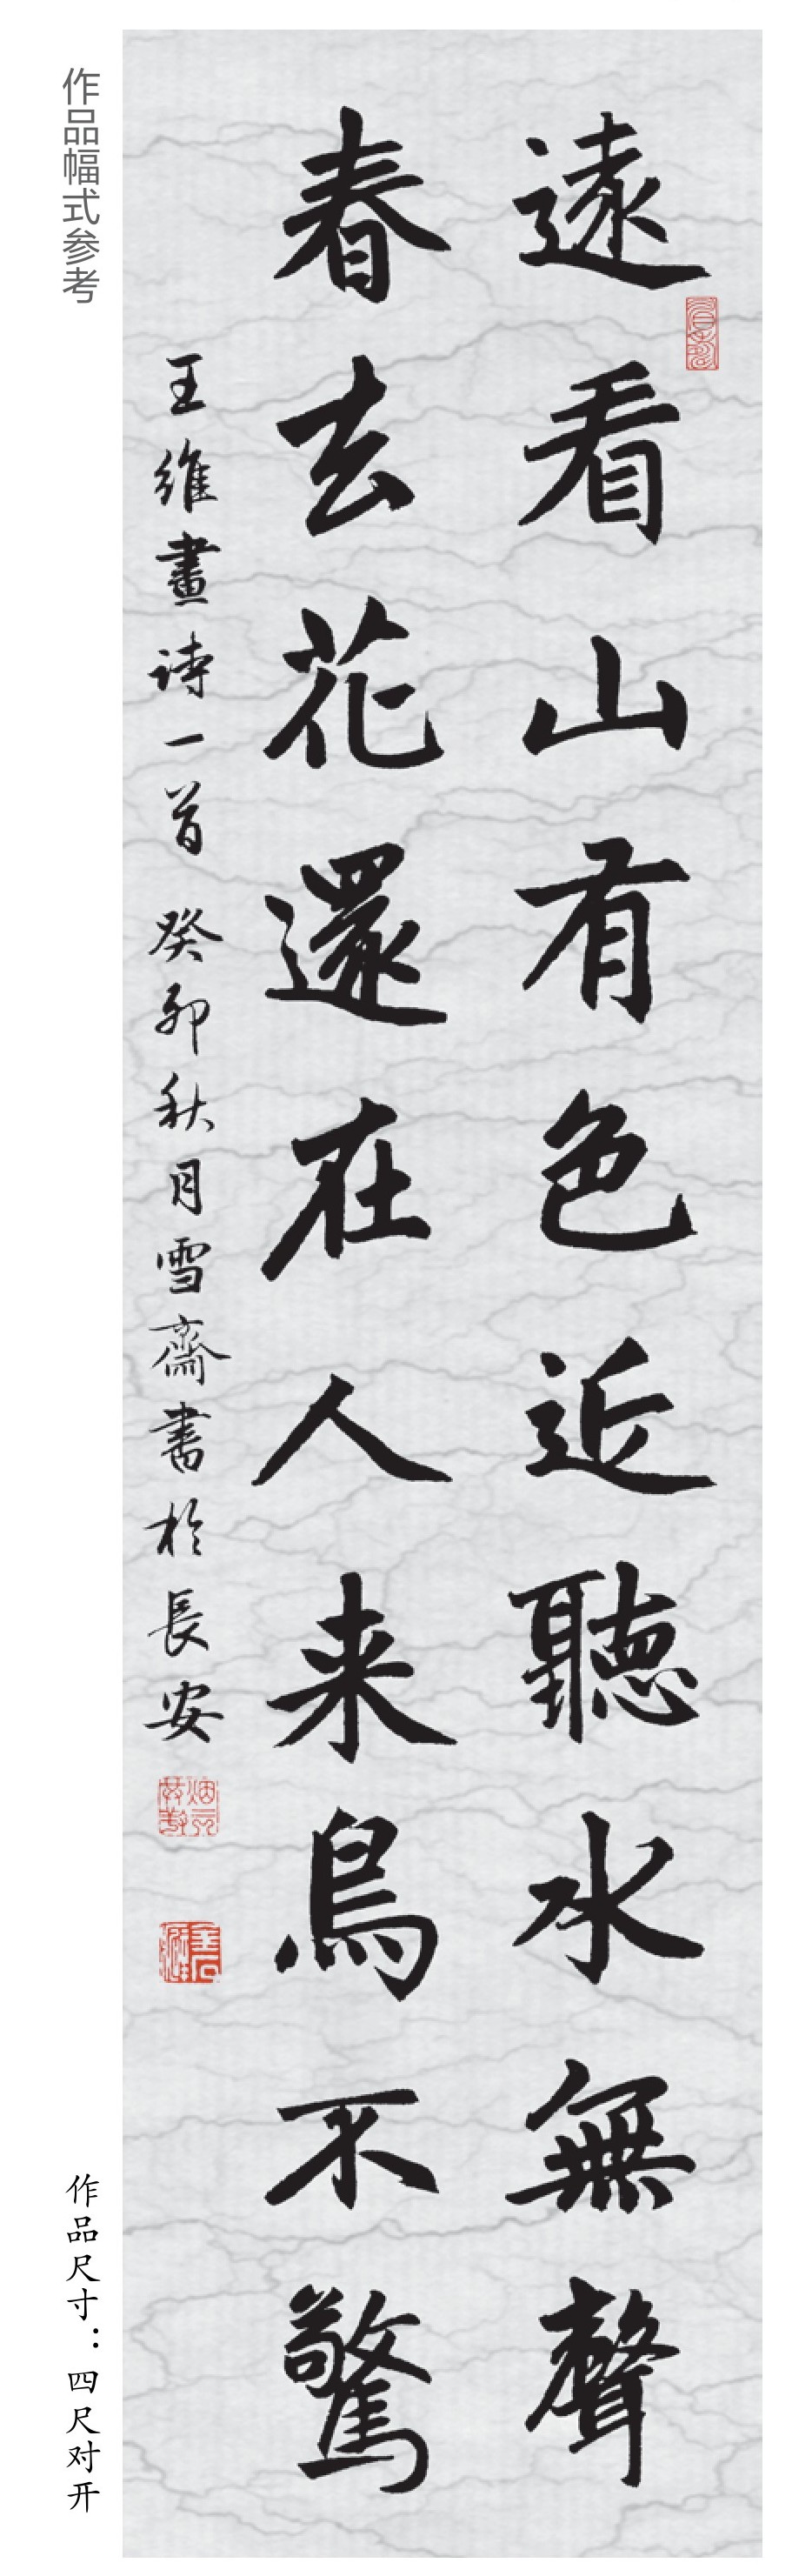 遠看山有色近聽水無聲
春去花還在人来鳥不驚
王維畫诗一首 癸卯秋月雪齋書於長安
作品幅式参考
作品尺寸：四尺对开